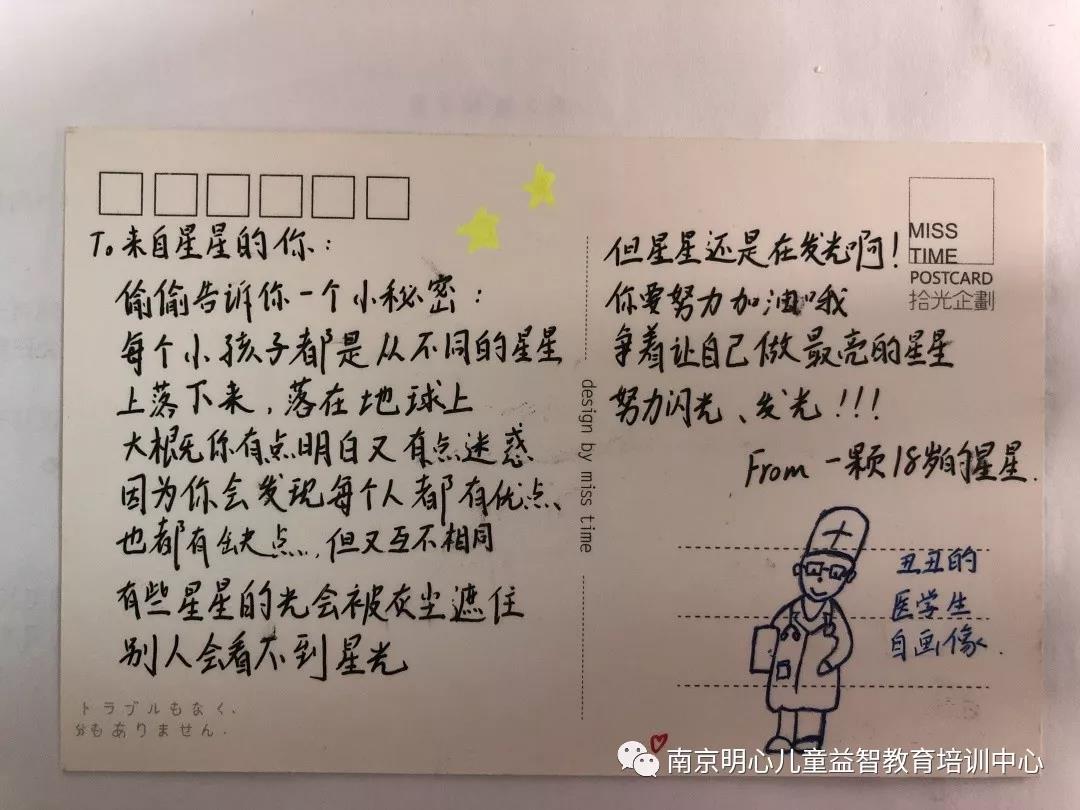 To 来自星星的你：
偷偷告诉你一个小秘密：
每个小孩子都是从不同的星星
上落下来，落在地球上
大概你有点明白又有点迷惑
因为你会发现每个人都有优点、
也都有缺点，但又互不相同
有些星星的光会被灰尘遮住
别人会看不到星光
トラブルもなく、
分もありません.
design by miss time
但星星还是在发光啊！
你要努力加油哦
争着让自己做最亮的星星
努力闪光、发光！！！
From 一颗18岁的星星.
MISS
TIME
POSTCARD
拾光企劃
丑丑的
医学生
自画像.
南京明心儿童益智教育培训中心